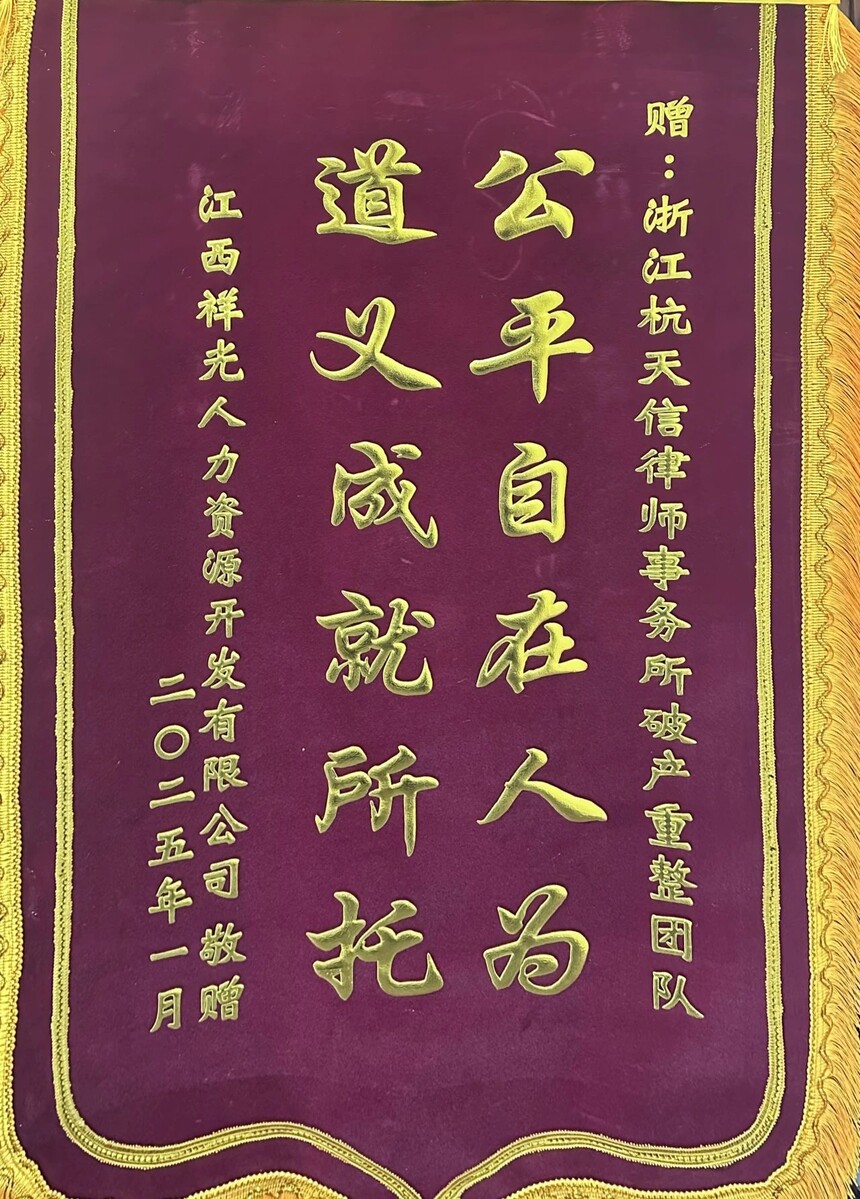 赠：浙江杭天信律师事务所破产重整团队
公平自在人为
道义成就所托
江西祥光人力资源开发有限公司 敬赠
二〇二五年一月